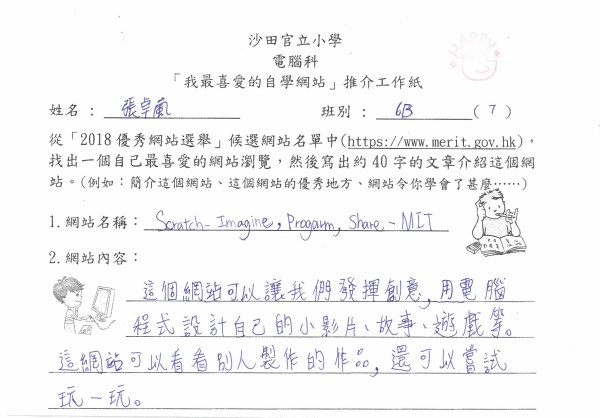 沙田官立小學
電腦科
「我最喜愛的自學網站」推介工作紙
HAPPY
姓名：張卓嵐 班別：6B (7)
從「2018優秀網站選舉」候選網站名單中(https://www.merit.gov.hk)，
找出一個自己最喜愛的網站瀏覽，然後寫出約40字的文章介紹這個網
站。(例如：簡介這個網站、這個網站的優秀地方、網站令你學會了甚麼……)
1.網站名稱：Scratch-Imagine, Progarm, Share-MIT
2.網站內容：
這個網站可以讓我們發揮創意，用電腦
程式設計自己的小影片、故事、遊戲等。
這網站可以看看別人製作的作品，還可以嘗試
玩一玩。